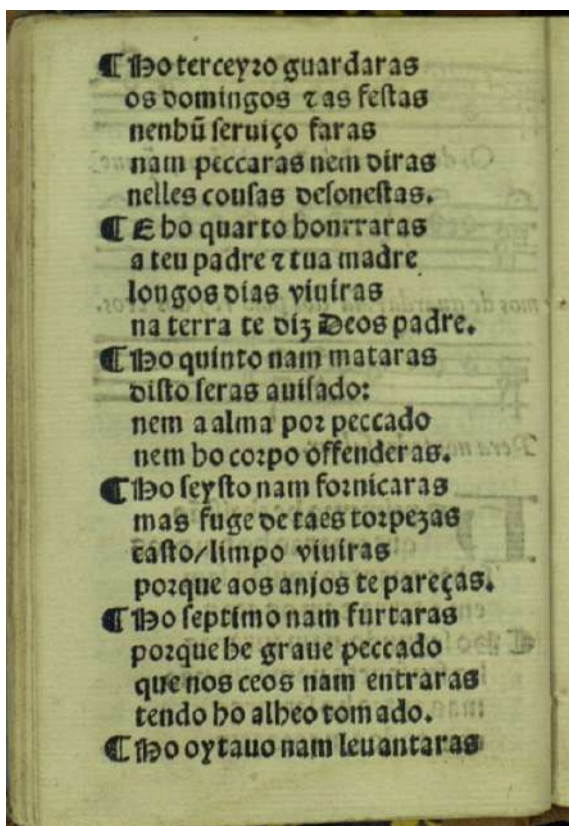 ¶ Ho terceyro guardaras
os domingos ⁊ as festas
nenhũ seruiço faras
nam peccaras nem diras
nelles cousas desonestas.
¶ E ho quarto honrraras
a teu padre ⁊ tua madre
longos dias viuiras
na terra te diz Deos padre.
¶ Ho quinto nam mataras
disto seras auisado:
nem a alma por peccado
nem ho corpo offenderas.
¶ Ho seysto nam fornicaras
mas fuge de taes torpezas
casto/limpo viuiras
porque aos anjos te pareças.
¶ Ho septimo nam furtaras
porque he graue peccado
que nos ceos nam entraras
tendo ho alheo tomado.
¶ Ho oytauo nam leuantaras